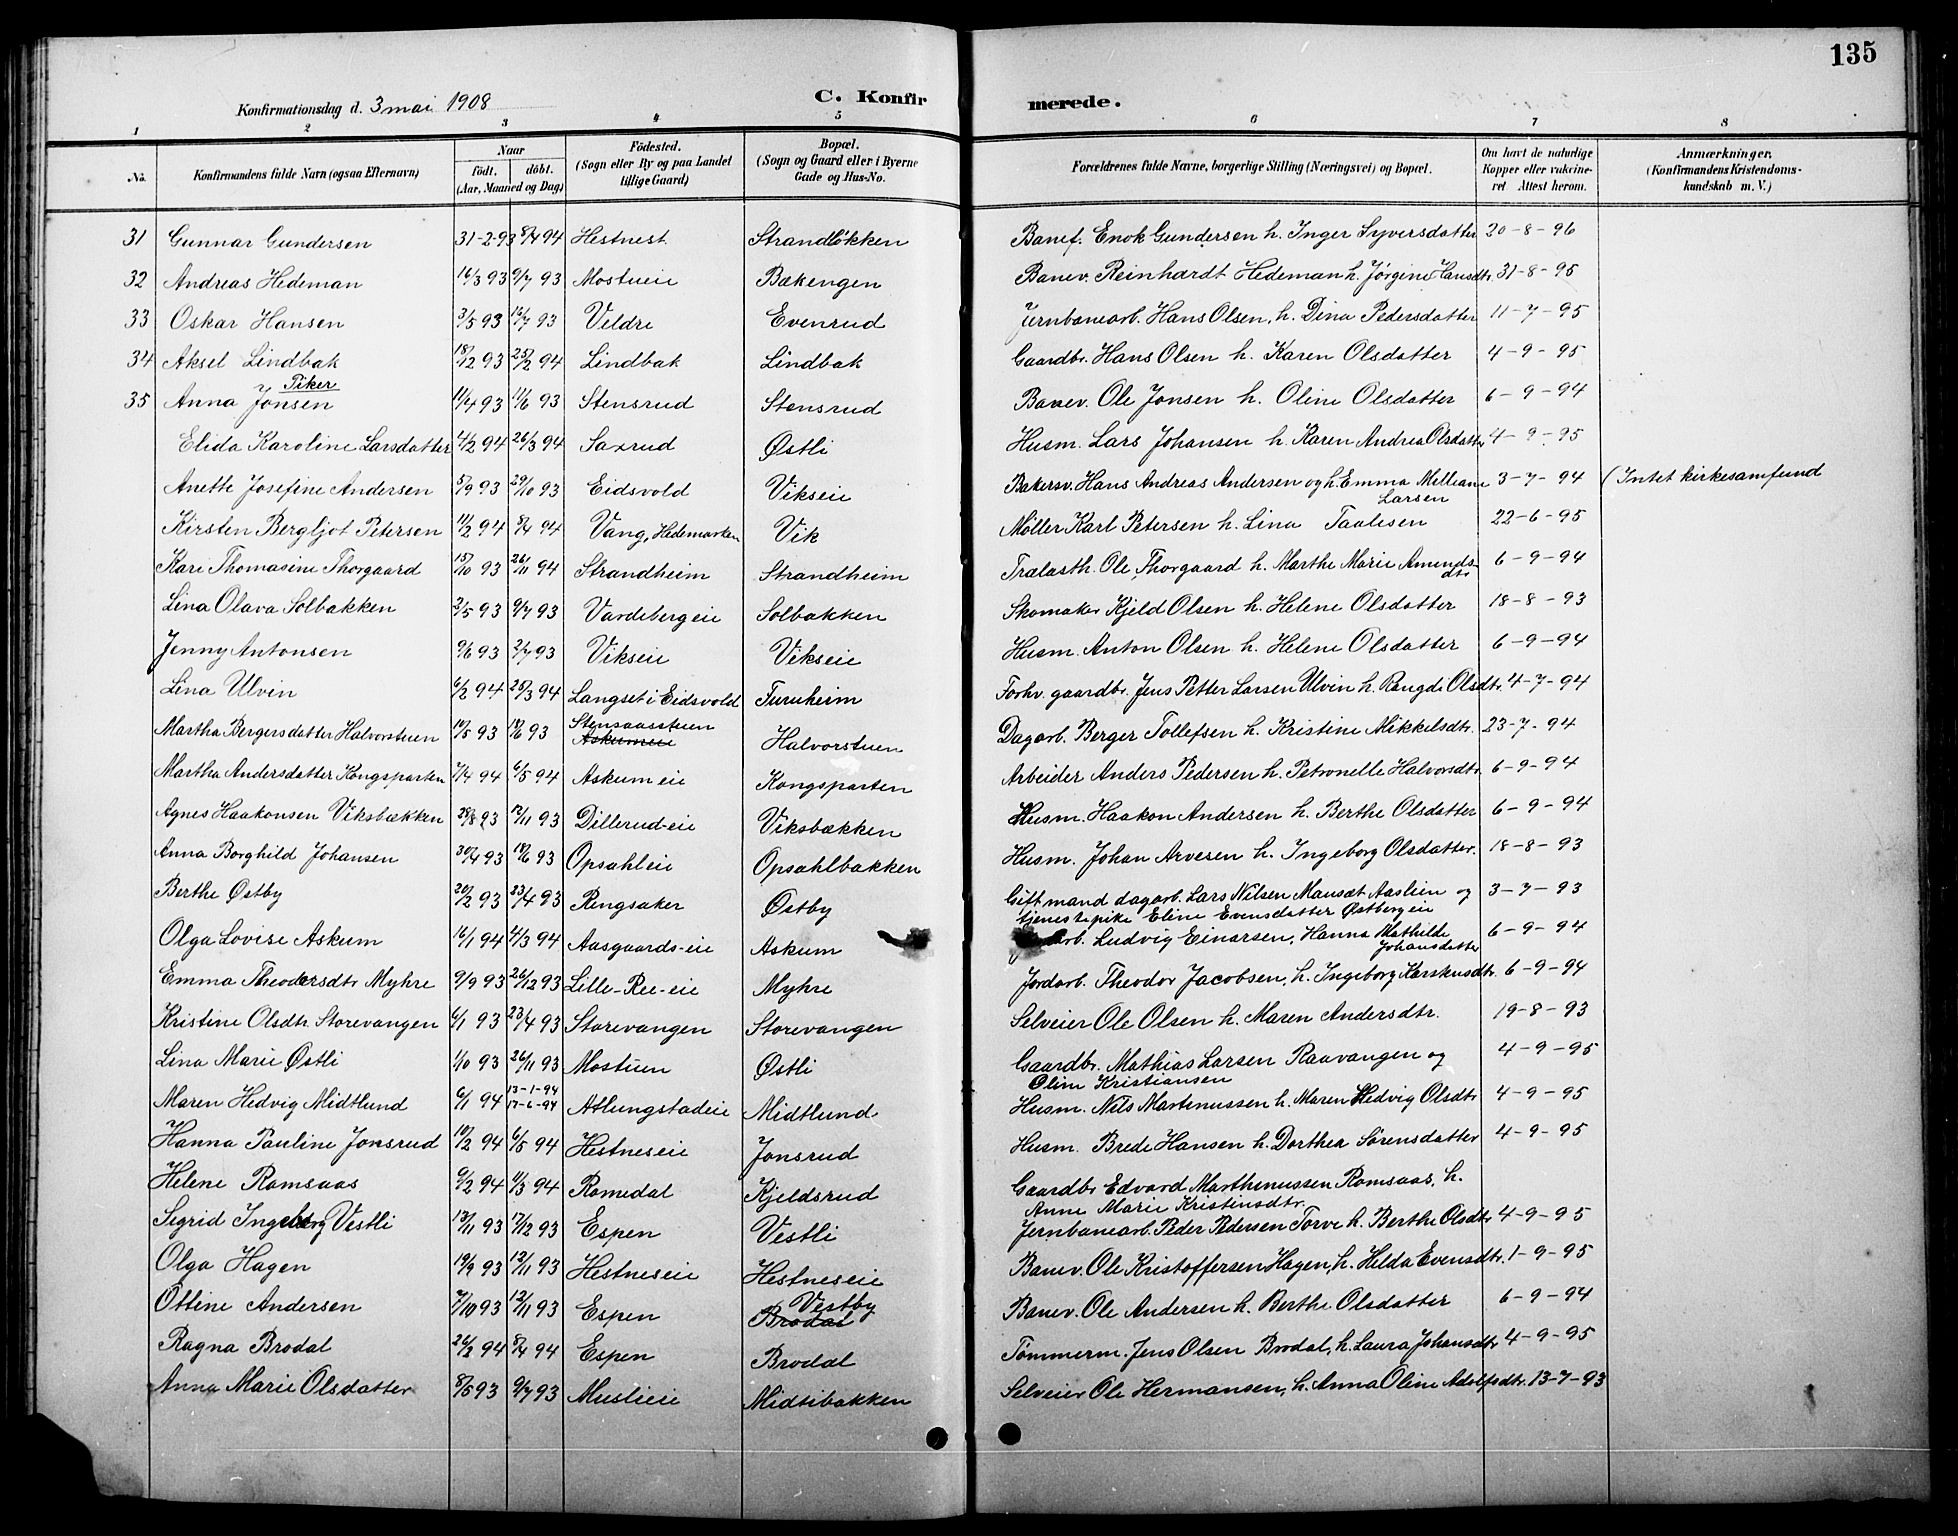 135
Konfirmationsdag d. 3 mai 1908
C. Konfirmerede.
1 2 3 4 5 6 7 8
No.
Konfirmandens fulde Navn (ogsaa Efternavn)
Naar
födt. döbt.
(Aar, Maaned og Dag)
Födested.
(Sogn eller By og paa Landet
tillige Gaard)
Bopæl.
(Sogn og Gaard eller i Byerne
Gade og Hus-No.
Forældrenes fulde Navne, borgerlige Stilling (Næringsvei) og Bopæl.
Om havt de naturlige
Kopper eller vakcine-
ret Attest herom.
Anmærkninger,
(Konfirmandens Kristendoms-
kundskab m. V.)
31 Gunnar Gundersen 31-2-93 8/4 94 Hestnest Strandløkken Banef. Enok Gundersen h. Inger Syversdatter 20-8-96
32 Andreas Hedeman 16/3 93 9/7 93 Mostueie Bækengen Banev. Reinhardt Hedeman h. Jørgine Hansdtr. 31-8-95
33 Oskar Hansen 3/5 93 16/7 93 Veldre Evenrud Jernbanearb. Hans Olsen, h. Dina Pedersdatter 11-7-95
34 Aksel Lindbak 18/12 93 25/2 94 Lindbak Lindbak Gaardbr. Hans Olsen h. Karen Olsdatter 4-9-95
Piker
35 Anna Jonsen 11/4 93 11/6 93 Stensrud Stensrud Banev. Ole Jonsen h. Oline Olsdatter 6-9-94
Elida Karoline Larsdatter 4/2 94 26/3 94 Saxrud Østli Husm. Lars Johansen h. Karen Andrea Olsdatter 4-9-95
Anette Josefine Andersen 5/9 93 29/10 93 Eidsvold Vikseie Bakersv. Hans Andreas Andersen og h. Emma Melleane 3-7-94 (Intet kirkesamfund
Larsen
Kirsten Bergljot Petersen 11/2 94 8/4 94 Vang, Hedemarken Vik Møller Karl Petersen h. Lina Taalesen 22-6-95
Kari Thomasine Thorgaard 15/10 93 26/11 94 Strandheim Strandheim Trælasth. Ole Thorgaard h. Marthe Marie Amunds- 6-9-94
dtr
Lina Olava Solbakken 2/5 93 9/7 93 Vardebergeie Solbakken Skomaker Kjeld Olsen h. Helene Olsdatter 18-8-93
Jenny Antonsen 9/6 93 2/7 93 Vikseie Vikseie Husm. Anton Olsen h. Helene Olsdatter 6-9-94
Lina Ulvin 6/2 94 25/3 94 Langset i Eidsvold Furuheim Forhv. gaardbr. Jens Petter Larsen Ulvin h. Rangdi Olsdtr. 4-7-94
Stensaasstuen
Martha Bergersdatter Halvorstuen 10/5 93 18/6 93 Askumeie Halvorstuen Dagarb. Berger Tollefsen h. Kristine Mikkelsdtr. 23-7-94
Martha Andersdatter Kongsparten 7/4 94 6/5 94 Askum eie Kongsparten Arbeider Anders Pedersen h. Petronelle Halvorsdtr. 6-9-94
Agnes Haakonsen Viksbækken 28/8 93 12/11 93 Dillerud-eie Viksbækken Husm. Haakon Andersen h. Berthe Olsdatter 6-9-94
Anna Borghild Johansen 30/4 93 18/6 93 Opsahleie Opsahlbakken Husm. Johan Arvesen h. Ingeborg Olsdatter. 18-8-93
Berthe Østby 20/2 93 23/4 93 Ringsaker Østby Gift mand dagarb. Lars Nilsen Mansæt Aaslien og 3-7-93
tjenestepike Eline Evensdatter Østbergeie
Olga Lovise Askum 16/1 94 4/3 94 Aasgaards-eie Askum Ludvig Einarsen, Hanna Mathilde 6-9-94
Johansdatter
Emma Theodorsdtr Myhre 9/9 93 26/12 93 Lille-Ree-eie Myhre Jordarb. Theodor Jacobsen, h. Ingeborg Karstensdtr. 6-9-94
Kristine Olsdtr. Storevangen 6/1 93 23/4 93 Storevangen Storevangen Selveier Ole Olsen h. Maren Andersdtr. 19-8-93
Lina Marie Østli 1/10 93 26/11 93 Mostuen Østli Gaardbr. Mathias Larsen Raavangen og 4-9-95
Oline Kristiansen
Maren Hedvig Midtlund 6/1 94 13-1-94
17-6-94 Atlungstadeie Midtlund Husm. Nils Martinussen h. Maren Hedvig Olsdtr 4-9-95
Hanna Pauline Jonsrud 10/2 94 6/5 94 Hestneseie Jonsrud Husm. Brede Hansen h. Dorthea Sørensdatter 4-9-95
Helene Romsaas 9/2 94 11/3 94 Romedal Kjeldsrud Gaardbr Edvard Marthinussen Romsaas, h.
Anne Marie Kristinsdtr.
Sigrid Ingeborg Vestli 13/11 93 17/12 93 Espen Vestli Jernbanearb. Peder Pedersen Torve h. Berthe Olsdtr 4-9-95
Olga Hagen 19/9 93 12/11 93 Hestneseie Hestneseie Banev. Ole Kristoffersen Hagen, h. Helda Evensdtr. 1-9-95
Ottine Andersen 7/10 93 12/11 93 Espen Vestby Banev. Ole Andersen h. Berthe Olsdatter 6-9-94
Brodal
Ragna Brodal 26/2 94 8/4 94 Espen Brodal Tømmerm. Jens Olsen Brodal, h. Laura Johansdtr 4-9-95
Anna Marie Olsdatter 8/5 93 9/7 93 Muslieie Midtibakken Selveier Ole Hermansen, h. Anna Oline Adolfsdtr. 13-7-93